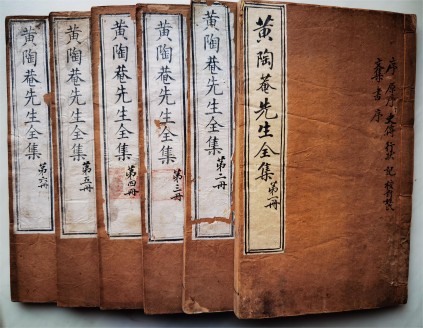 序 原序 史傳 行狀 記
黃陶菴先生全集 第一冊
黃陶菴先生全集 第二冊
黃陶菴先生全集 第三冊
黃陶菴先生全集 第四冊
黃陶菴先生全集 第五冊
黃陶菴先生全集 第六冊